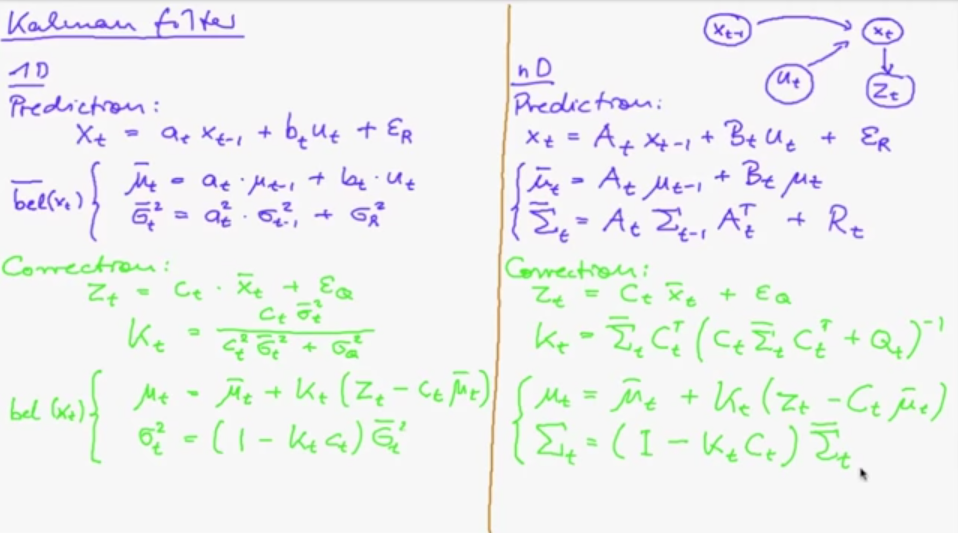 Kalman filter
1D
Prediction:
x_t = a_t x_{t-1} + b_t u_t + ε_R
bel̅(x_t) { μ̅_t = a_t · μ_{t-1} + b_t · u_t
σ̅_t² = a_t² · σ_{t-1}² + σ_R²
Correction:
z_t = c_t · x̅_t + ε_Q
K_t = c_t σ̅_t² / (c_t² σ̅_t² + σ_Q²)
bel(x_t) { μ_t = μ̅_t + K_t (z_t - c_t μ̅_t)
σ_t² = (1 - K_t c_t) σ̅_t²
x_{t-1}
x_t
u_t
z_t
nD
Prediction:
x_t = A_t x_{t-1} + B_t u_t + ε_R
{ μ̅_t = A_t μ_{t-1} + B_t μ_t
Σ̅_t = A_t Σ_{t-1} A_t^T + R_t
Correction:
z_t = C_t x̅_t + ε_Q
K_t = Σ̅_t C_t^T (C_t Σ̅_t C_t^T + Q_t)^{-1}
{ μ_t = μ̅_t + K_t (z_t - C_t μ̅_t)
Σ_t = (I - K_t C_t) Σ̅_t